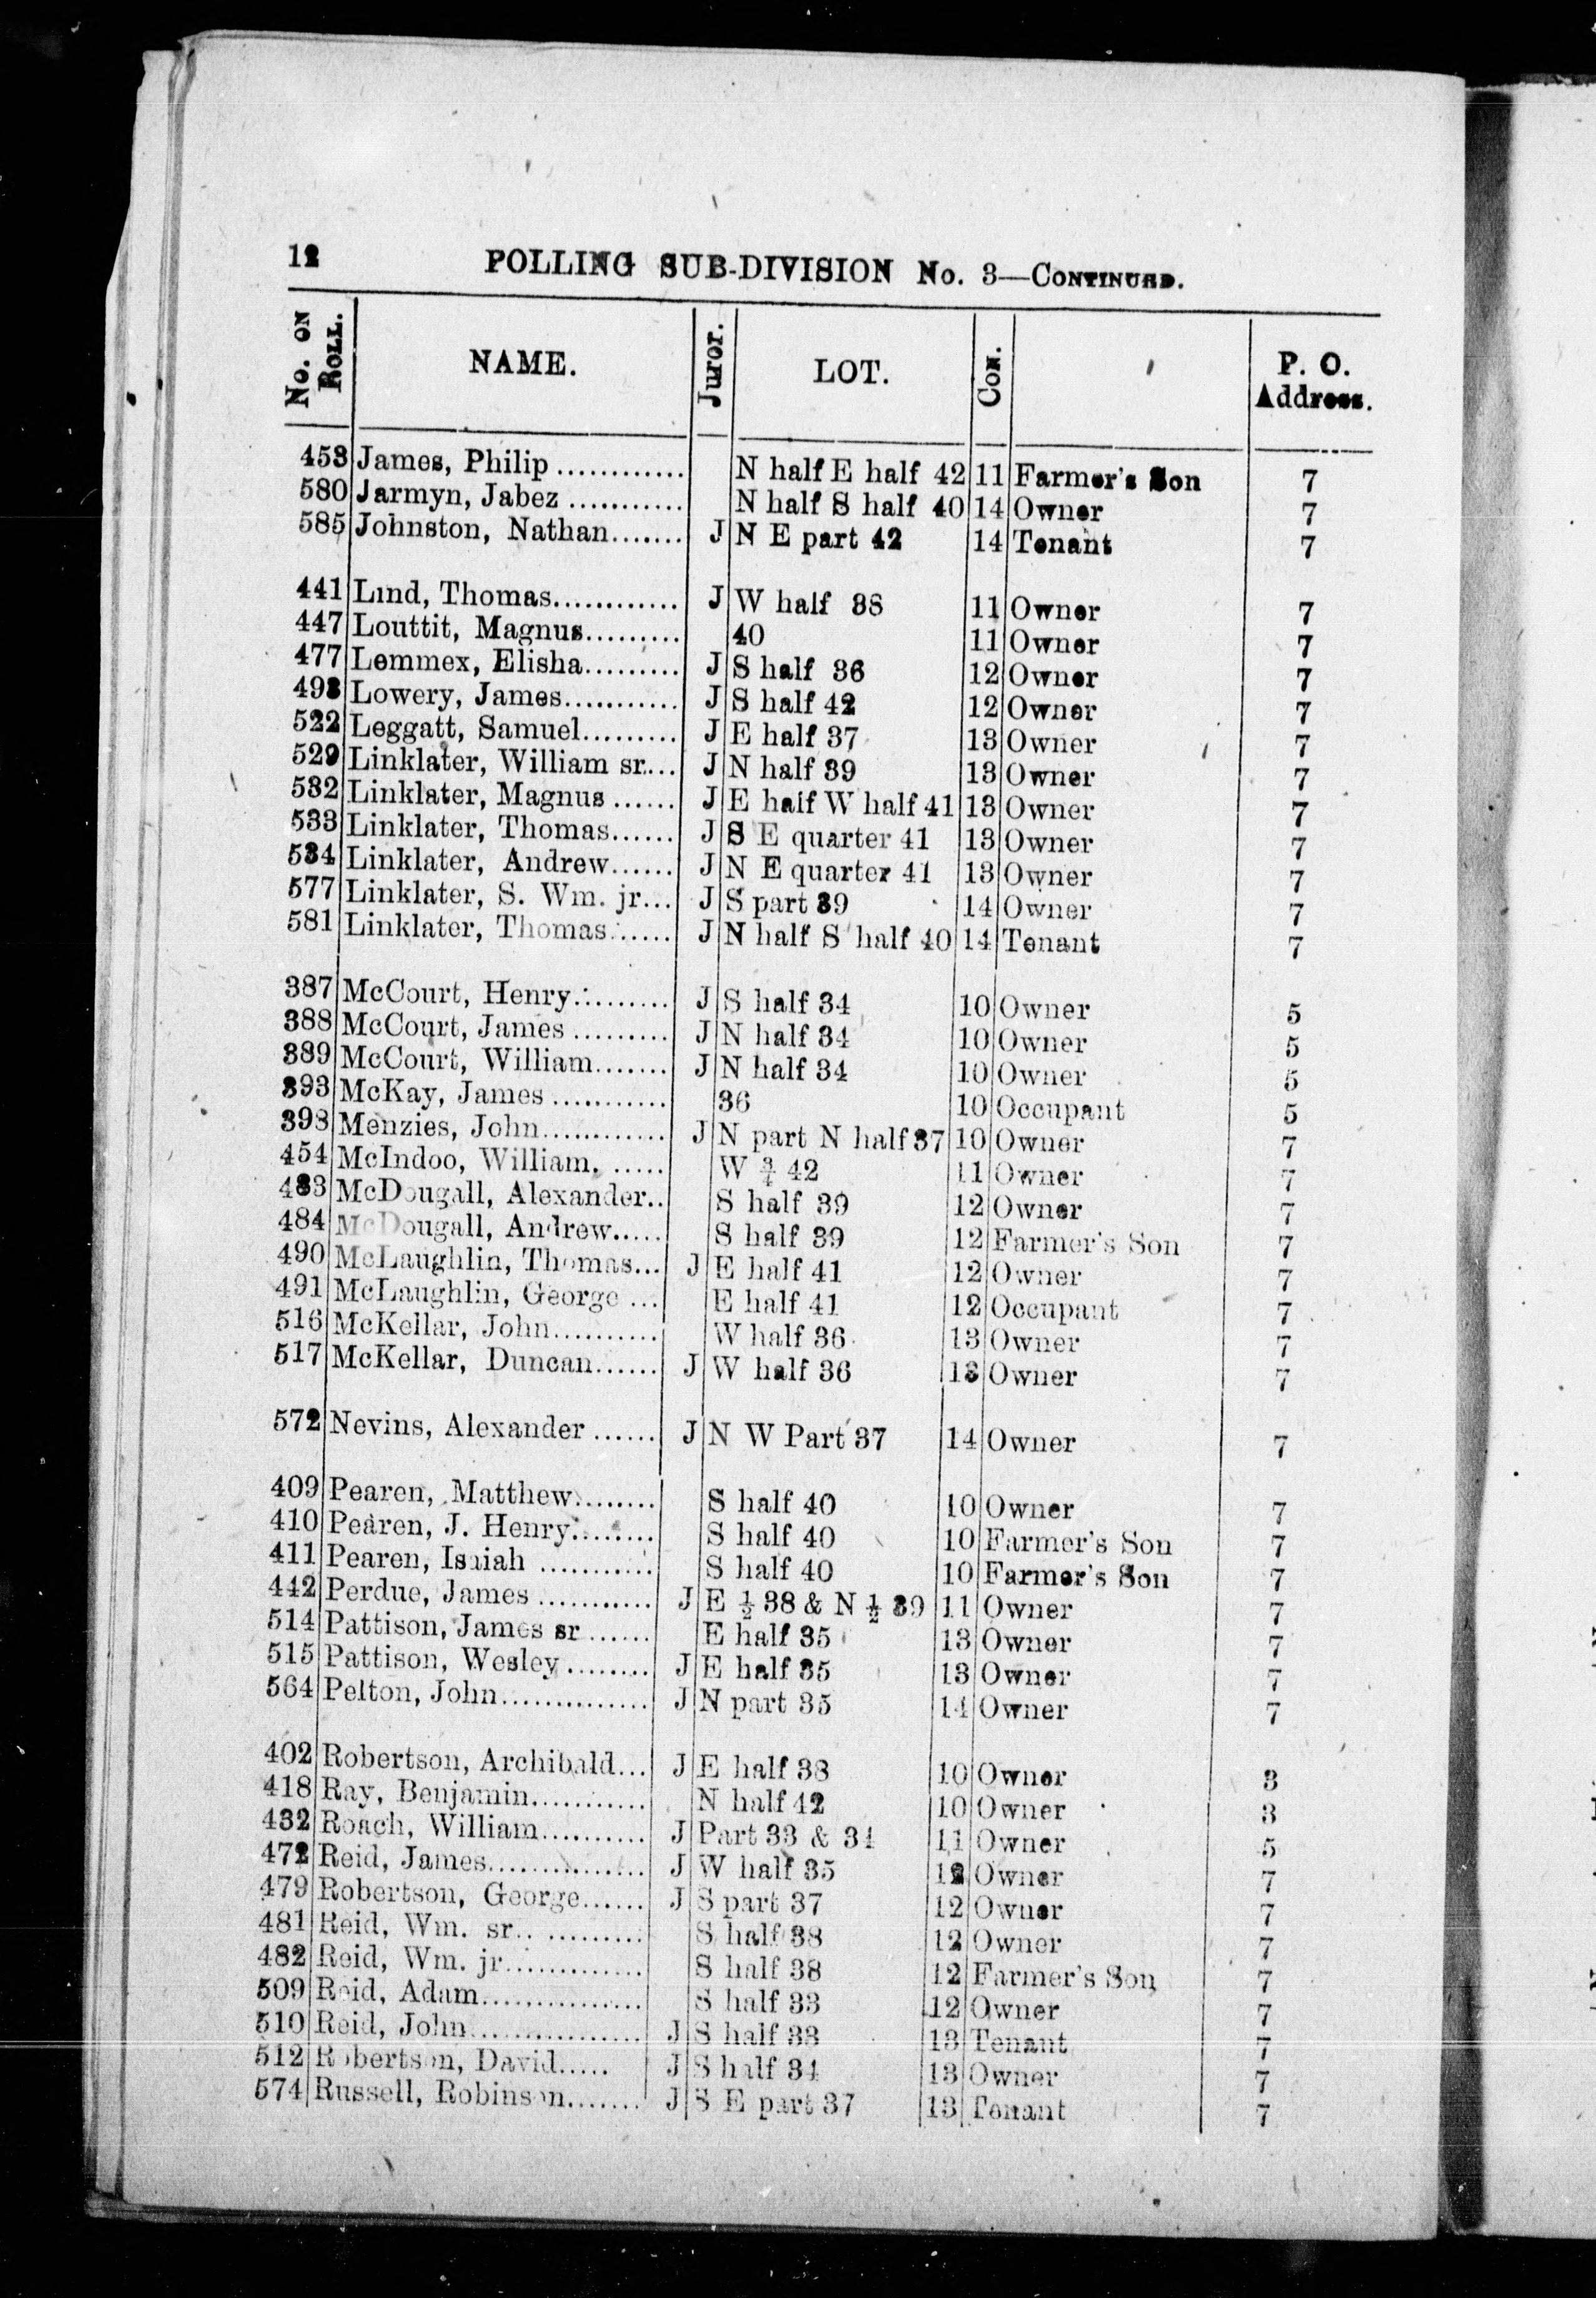 12 POLLING SUB-DIVISION No. 3—CONTINUED.
No. ON ROLL. NAME. Juror. LOT. Con. P. O. Address.
453 James, Philip ............ N half E half 42 11 Farmer's Son 7
580 Jarmyn, Jabez ........... N half S half 40 14 Owner 7
585 Johnston, Nathan....... J N E part 42 14 Tenant 7
441 Lind, Thomas............ J W half 38 11 Owner 7
447 Louttit, Magnus......... 40 11 Owner 7
477 Lemmex, Elisha......... J S half 36 12 Owner 7
493 Lowery, James........... J S half 42 12 Owner 7
522 Leggatt, Samuel......... J E half 37 13 Owner 7
529 Linklater, William sr.... J N half 39 13 Owner 7
532 Linklater, Magnus ...... J E half W half 41 13 Owner 7
533 Linklater, Thomas...... J S E quarter 41 13 Owner 7
534 Linklater, Andrew...... J N E quarter 41 13 Owner 7
577 Linklater, S. Wm. jr... J S part 39 14 Owner 7
581 Linklater, Thomas...... J N half S half 40 14 Tenant 7
387 McCourt, Henry......... J S half 34 10 Owner 5
388 McCourt, James ......... J N half 34 10 Owner 5
389 McCourt, William....... J N half 34 10 Owner 5
393 McKay, James ........... 36 10 Occupant 5
398 Menzies, John............ J N part N half 37 10 Owner 7
454 McIndoo, William. ..... W ¾ 42 11 Owner 7
483 McDougall, Alexander.. S half 39 12 Owner 7
484 McDougall, Andrew..... S half 39 12 Farmer's Son 7
490 McLaughlin, Thomas... J E half 41 12 Owner 7
491 McLaughlin, George ... E half 41 12 Occupant 7
516 McKellar, John.......... W half 36 13 Owner 7
517 McKellar, Duncan...... J W half 36 13 Owner 7
572 Nevins, Alexander ...... J N W Part 37 14 Owner 7
409 Pearen, Matthew........ S half 40 10 Owner 7
410 Pearen, J. Henry........ S half 40 10 Farmer's Son 7
411 Pearen, Isaiah ........... S half 40 10 Farmer's Son 7
442 Perdue, James ........... J E ½ 38 & N ½ 39 11 Owner 7
514 Pattison, James sr ...... E half 35 13 Owner 7
515 Pattison, Wesley ........ J E half 35 13 Owner 7
564 Pelton, John.............. J N part 35 14 Owner 7
402 Robertson, Archibald... J E half 38 10 Owner 3
418 Ray, Benjamin........... N half 42 10 Owner 3
432 Roach, William.......... J Part 33 & 34 11 Owner 5
472 Reid, James............... J W half 35 12 Owner 7
479 Robertson, George...... J S part 37 12 Owner 7
481 Reid, Wm. sr.. ......... S half 38 12 Owner 7
482 Reid, Wm. jr............. S half 38 12 Farmer's Son 7
509 Reid, Adam............... S half 33 12 Owner 7
510 Reid, John................ J S half 33 13 Tenant 7
512 Robertson, David..... J S half 34 13 Owner 7
574 Russell, Robinson....... J S E part 37 13 Tenant 7